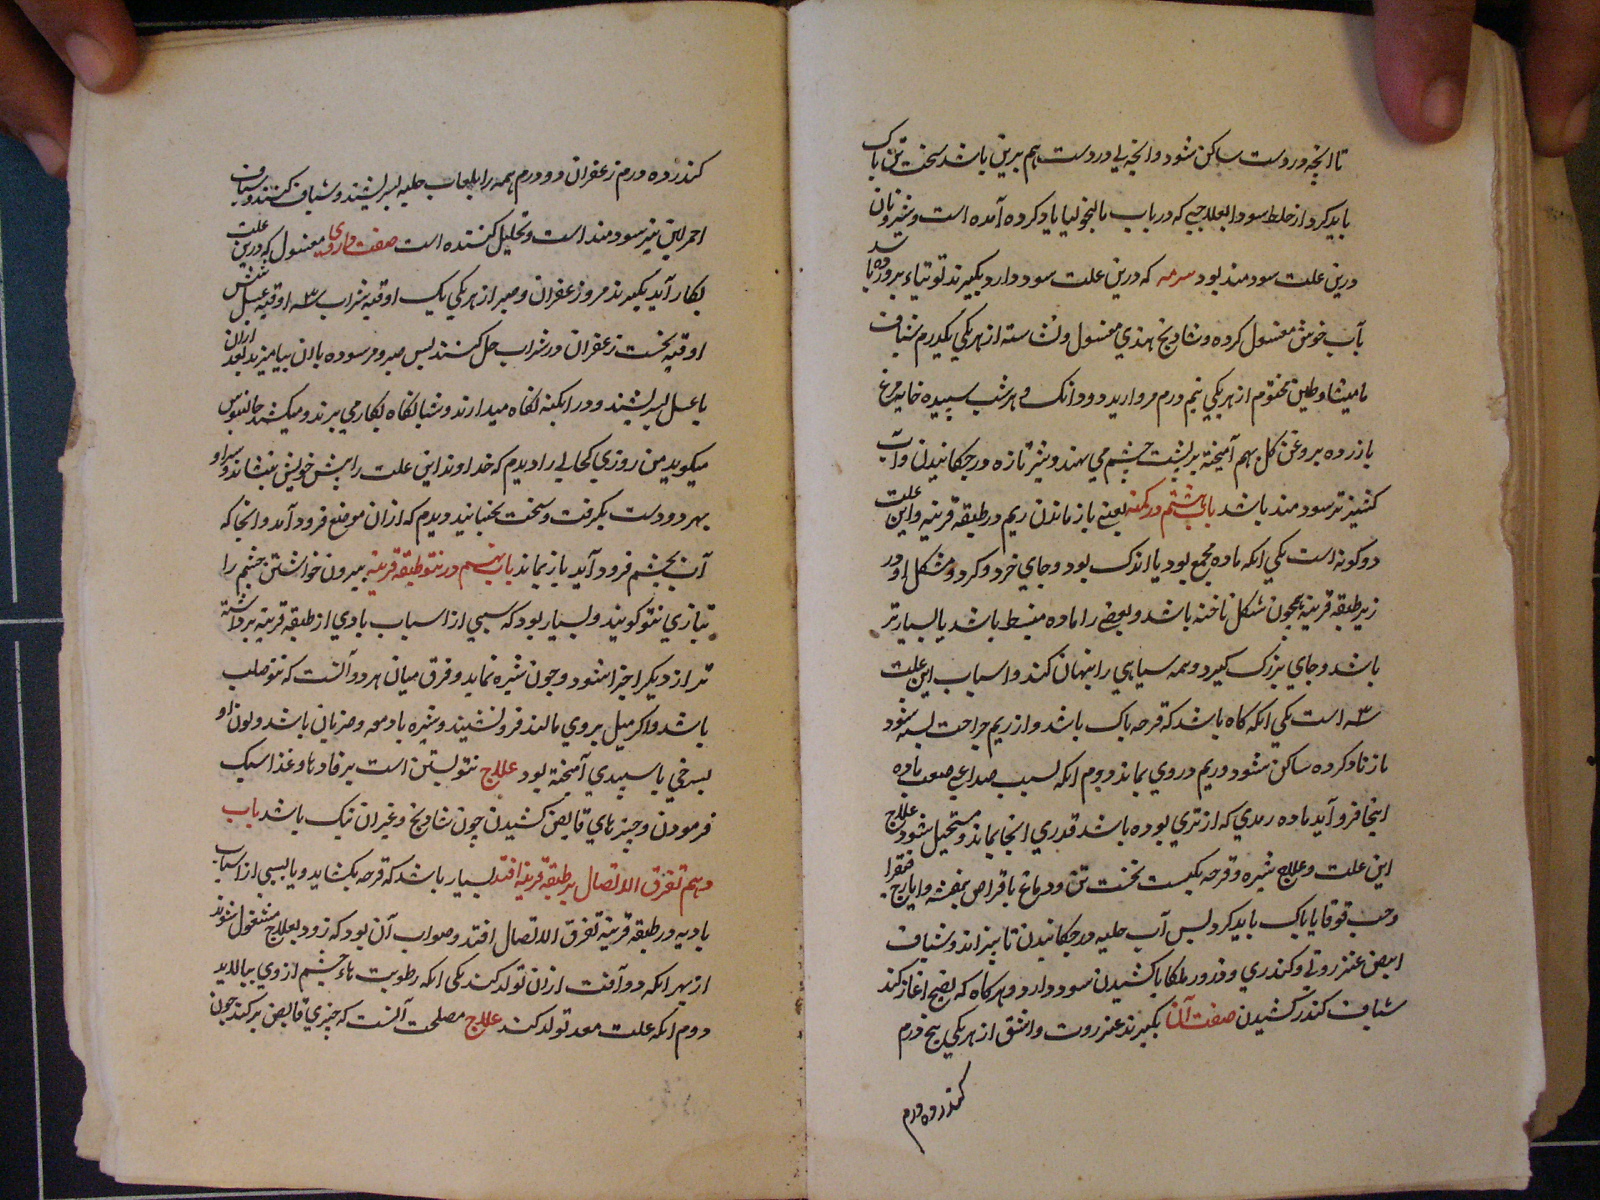 تا انچه دردست ساکن شود و انچه بی دردست هم برین باشد سخت تن پاک
باید کرد از خلط سودا بعلاجی که در باب مالنخولیا یاد کرده آمده است و شیر زنان
درین علت سودمند بود سرمه که درین علت سود دارد بگیرند توتیاء پرورده
بآب خوش مغسول کرده و شادنج هندی مغسول و نشاسته از هریکی یکدرم شیاف
مامیثا و طین مختوم از هریکی نیم درم مروارید دودانک و هر شب سپیده خایه مرغ
بازرده بروغن کل بهم آمیخته بر پشت چشم می نهند و شیر تازه درچکانیدن و آب
کشنیز تر سودمند باشد باب هشتم در کمنه یعنی بازماندن ریم در طبقه قرنیه و این علت
دوکونه است یکی انکه ماده مجمع بود یا اندک بود و جای خرد و کرد و مشکل او در
زیر طبقه قرنیه همچون شکل ناخنه باشد و بعضی را ماده منبسط باشد یا بسیارتر
باشد و جای بزرک کیرد و همه سیاهی را پنهان کند و اسباب این علت
سه است یکی انکه کاه باشد که قرحه پاک باشد و از ریم جراحت بسته شود
باز ناد کرده ساکن شود و ریم در وی بماند دوم انکه بسبب صداعی صعب ماده
اینجا فرو آید ماده رمدی که از تری بوده باشد قدری انجا بماند و مستحیل شود علاج
این علت و علاج بثره و قرحه یکیست نخست تن و دماغ باقراص بنفشه و ایارج فیقرا
و حب قوقایا پاک باید کرد و پس آب حلبه درچکانیدن تا بپزاند و شیاف
ابیض عنزروتی و کندری و ذرور ملکایا کشیدن سود دارد و هرکاه که نضج اغاز کند
شیاف کندر کشیدن صفت آن بکیرند عنزروت و اشق از هریکی پنج درم
کندر ده درم
کندر ده درم زعفران دو درم همه را بلعاب حلبه بسرشند و شیاف کنند و شیاف
احمر لین نیز سودمند است و تحلیل کننده است صفت داروی مغسول که درین علت
بکار آید بکیرند مر و زعفران و صبر از هریکی یک اوقیه شراب سه اوقیه عسل شش
اوقیه نخست زعفران در شراب حل کنند پس صبر و مر سوده با ان بیامیزند بعد ازان
با عسل بسرشند و در ابکینه نکاه میدارند و شبانکاه بکار می برند و میکشند جالینوس
میکوید من روزی کحالی را دیدم که خداوند این علت را پیش خویش بنشاند و سر او
بهر دو دست بکرفت و سخت بجنبانید و دیدم که ازان موضع فرود آمد و انجا که
آب بچشم فرود آید باز بماند باب نهم در نتو طبقه قرنیه بیرون خواستن چشم را
بتازی نتو کویند و بسیار بود که بسببی از اسباب بادی از طبقه قرنیه برداشته
تر از دیکر اجزا شود و چون بثره نماید و فرق میان هر دو آنست که نتو صلب
باشد و اکر میل بر وی مالند فرو ننشیند و بثره با دمعه و ضربان باشد و لون او
بسرخی یا سپیدی آمیخته بود علاج نتو بستن است برفادها و غذا سبک
فرمودن و چیزهای قابض کشیدن چون شادنج و غیر ان نیک باشد باب
دهم تفرق الاتصال بر طبقه قرنیه افتد بسیار باشد که قرحه بکشاید و یا بسببی از اسباب
بادیه در طبقه قرنیه تفرق الاتصال افتد و صواب آن بود که زود بعلاج مشغول شوند
از بهر انکه دو آفت ازان تولد کند یکی انکه رطوبت هاء چشم از وی بپالاید
دوم انکه علت معد تولد کند علاج مصلحت آنست که چیزی قابض برکند چون